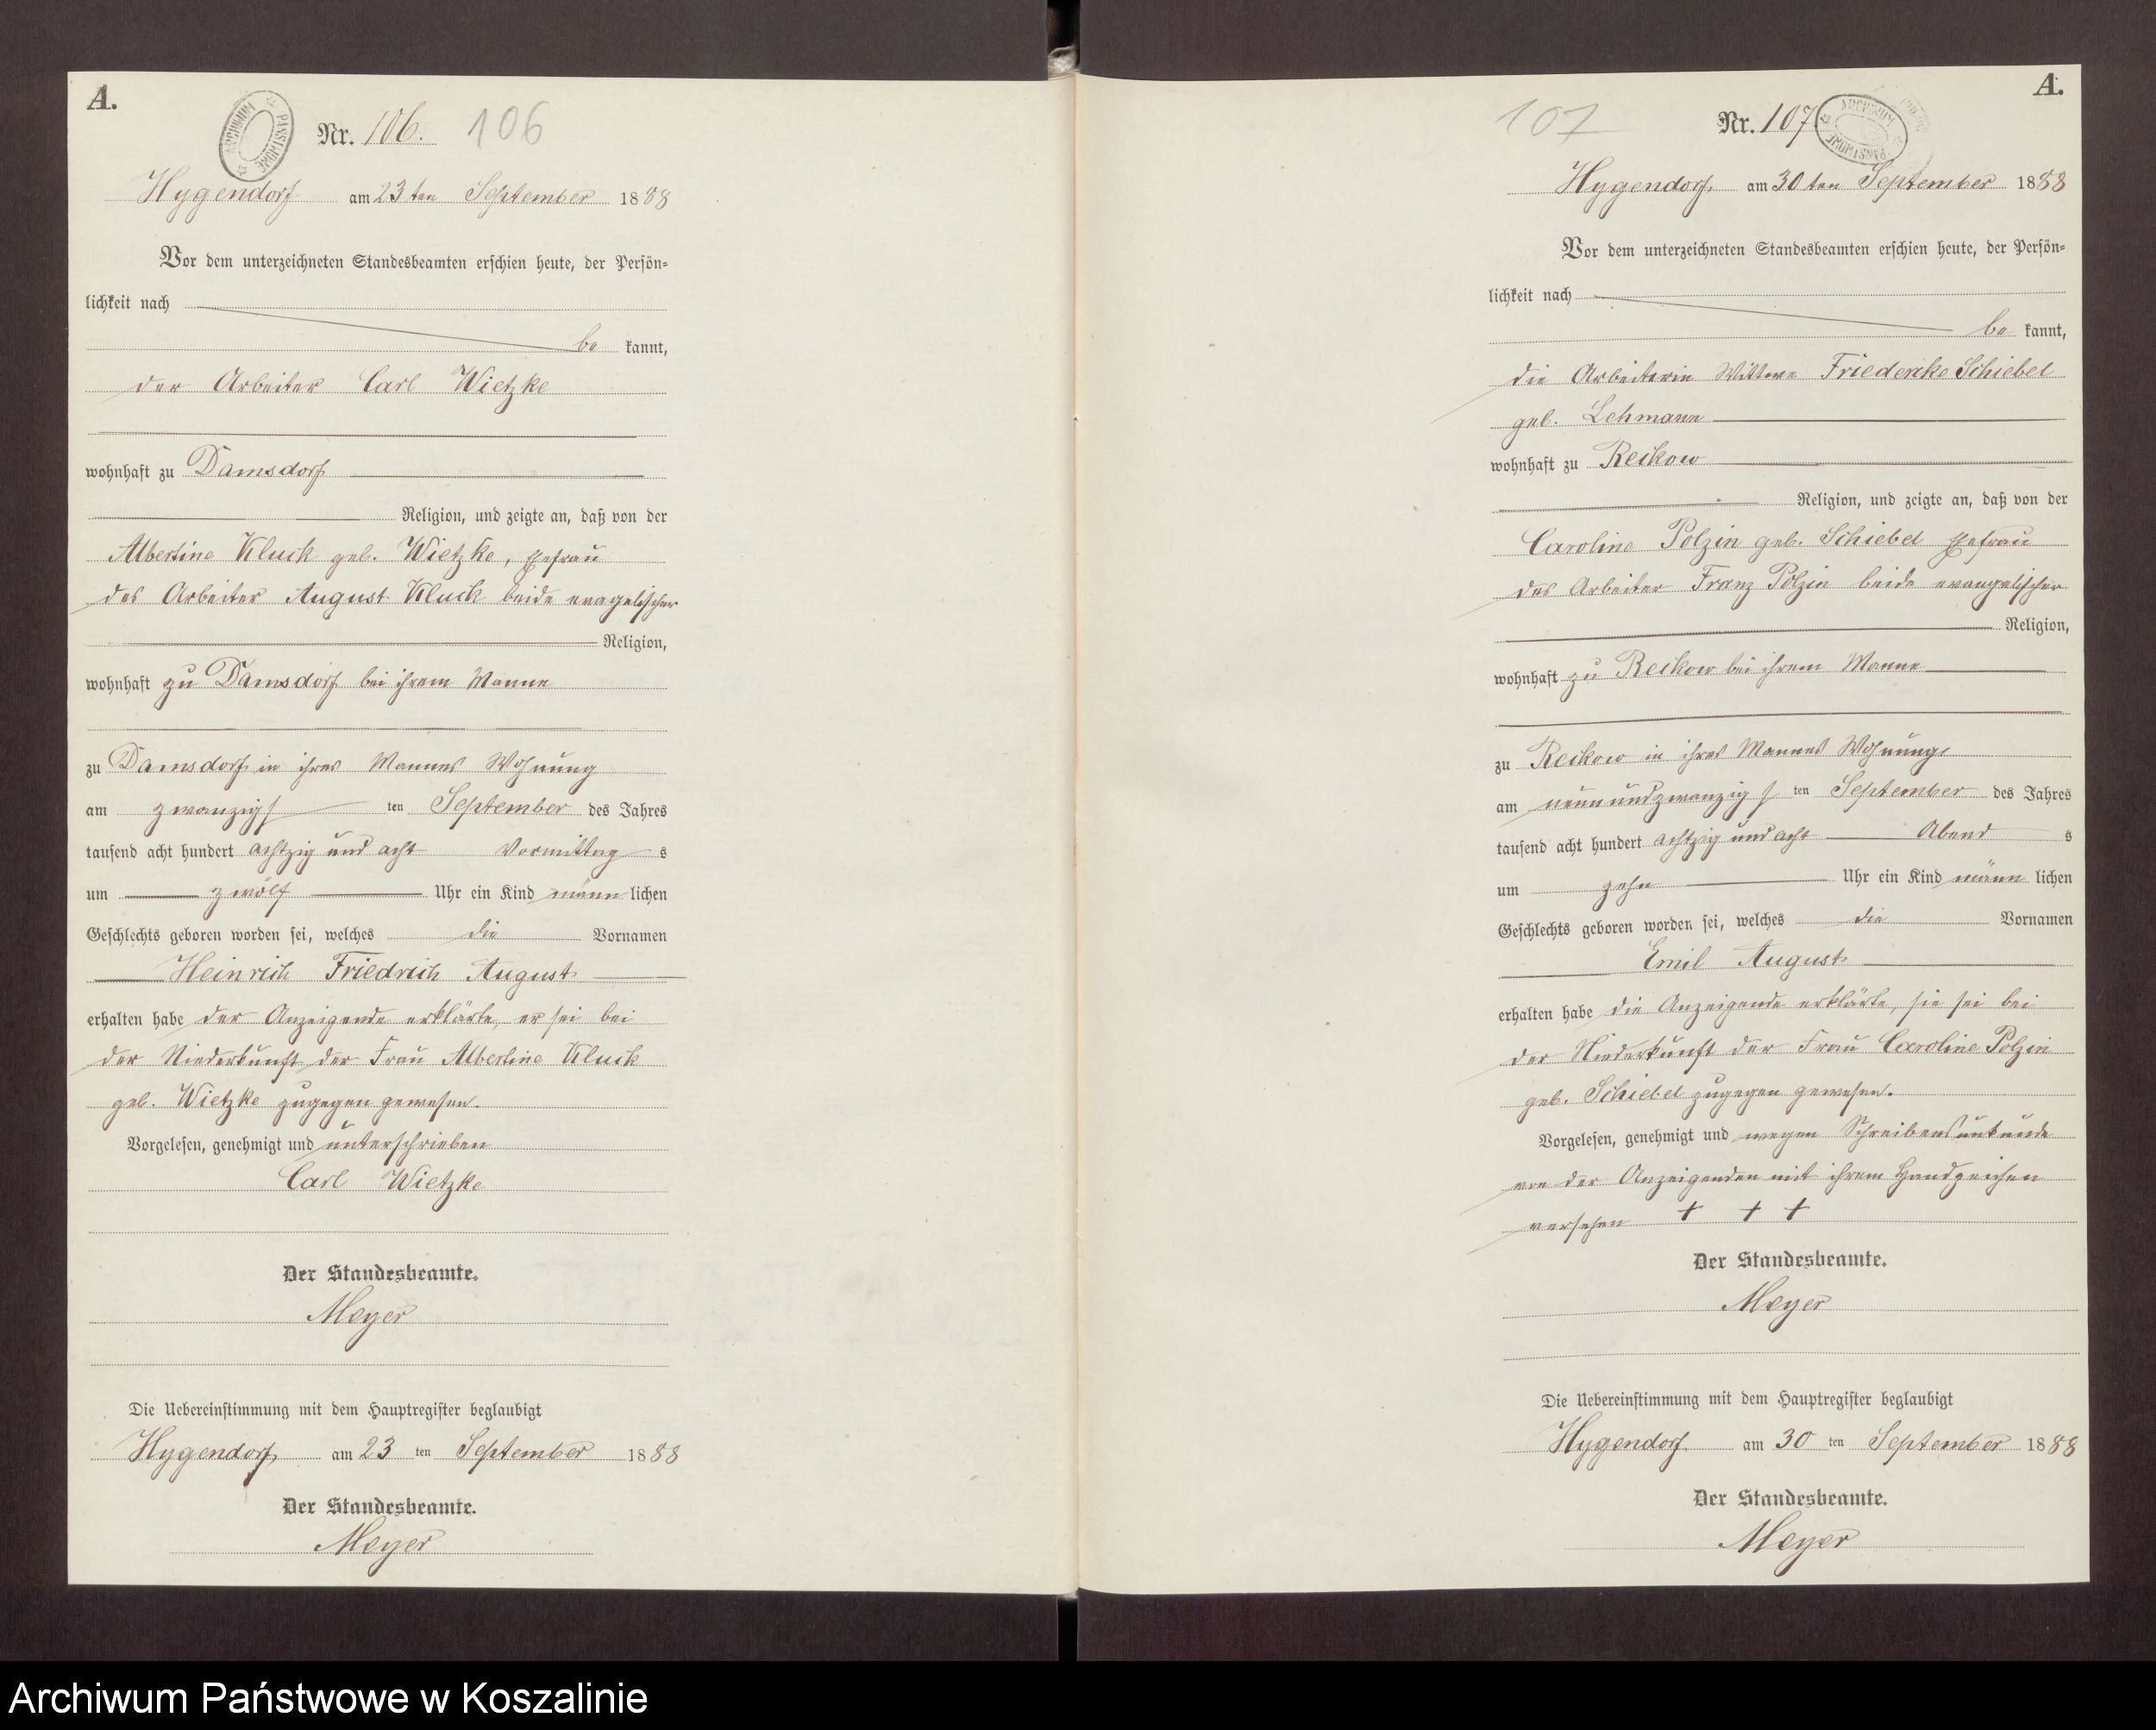 A.
ARCHIWUM PAŃSTWOWE
Nr. 106. 106
Hygendorf am 23ten September 1888
Vor dem unterzeichneten Standesbeamten erschien heute, der Persön-
lichkeit nach
be kannt,
der Arbeiter Carl Wietzke
wohnhaft zu Damsdorf
Religion, und zeigte an, daß von der
Albertine Kluck geb. Wietzke, Ehefrau
des Arbeiter August Kluck beide evagelischer
Religion,
wohnhaft zu Damsdorf bei ihrem Manne
zu Damsdorf in ihres Mannes Wohnung
am zwanzigs ten September des Jahres
tausend acht hundert achtzig und acht Vormittag s
um zwölf Uhr ein Kind männ lichen
Geschlechts geboren worden sei, welches die Vornamen
Heinrich Friedrich August
erhalten habe der Anzeigende erklärte, er sei bei
der Niederkunft der Frau Albertine Kluck
geb. Wietzke zugegen gewesen.
Vorgelesen, genehmigt und unterschrieben
Carl Wietzke
Der Standesbeamte.
Meyer
Die Uebereinstimmung mit dem Hauptregister beglaubigt
Hygendorf am 23 ten September 1888
Der Standesbeamte.
Meyer
A.
107 Nr. 107
ARCHIWUM PAŃSTWOWE
Hygendorf am 30ten September 1888
Vor dem unterzeichneten Standesbeamten erschien heute, der Persön-
lichkeit nach
be kannt,
die Arbeiterin Wittwe Friederike Schiebel
geb. Lehmann
wohnhaft zu Reikow
Religion, und zeigte an, daß von der
Caroline Polzin geb. Schiebel Ehefrau
des Arbeiter Franz Polzin beide evangelischer
Religion,
wohnhaft zu Reikow bei ihrem Manne
zu Reikow in ihres Mannes Wohnung
am neunundzwanzig s ten September des Jahres
tausend acht hundert achtzig und acht Abend s
um zehn Uhr ein Kind männ lichen
Geschlechts geboren worden sei, welches die Vornamen
Emil August
erhalten habe die Anzeigende erklärte, sie sei bei
der Niederkunft der Frau Caroline Polzin
geb. Schiebel zugegen gewesen.
Vorgelesen, genehmigt und wegen Schreibensunkunde
von der Anzeigenden mit ihrem Handzeichen
versehen + + +
Der Standesbeamte.
Meyer
Die Uebereinstimmung mit dem Hauptregister beglaubigt
Hygendorf am 30 ten September 1888
Der Standesbeamte.
Meyer
Archiwum Państwowe w Koszalinie